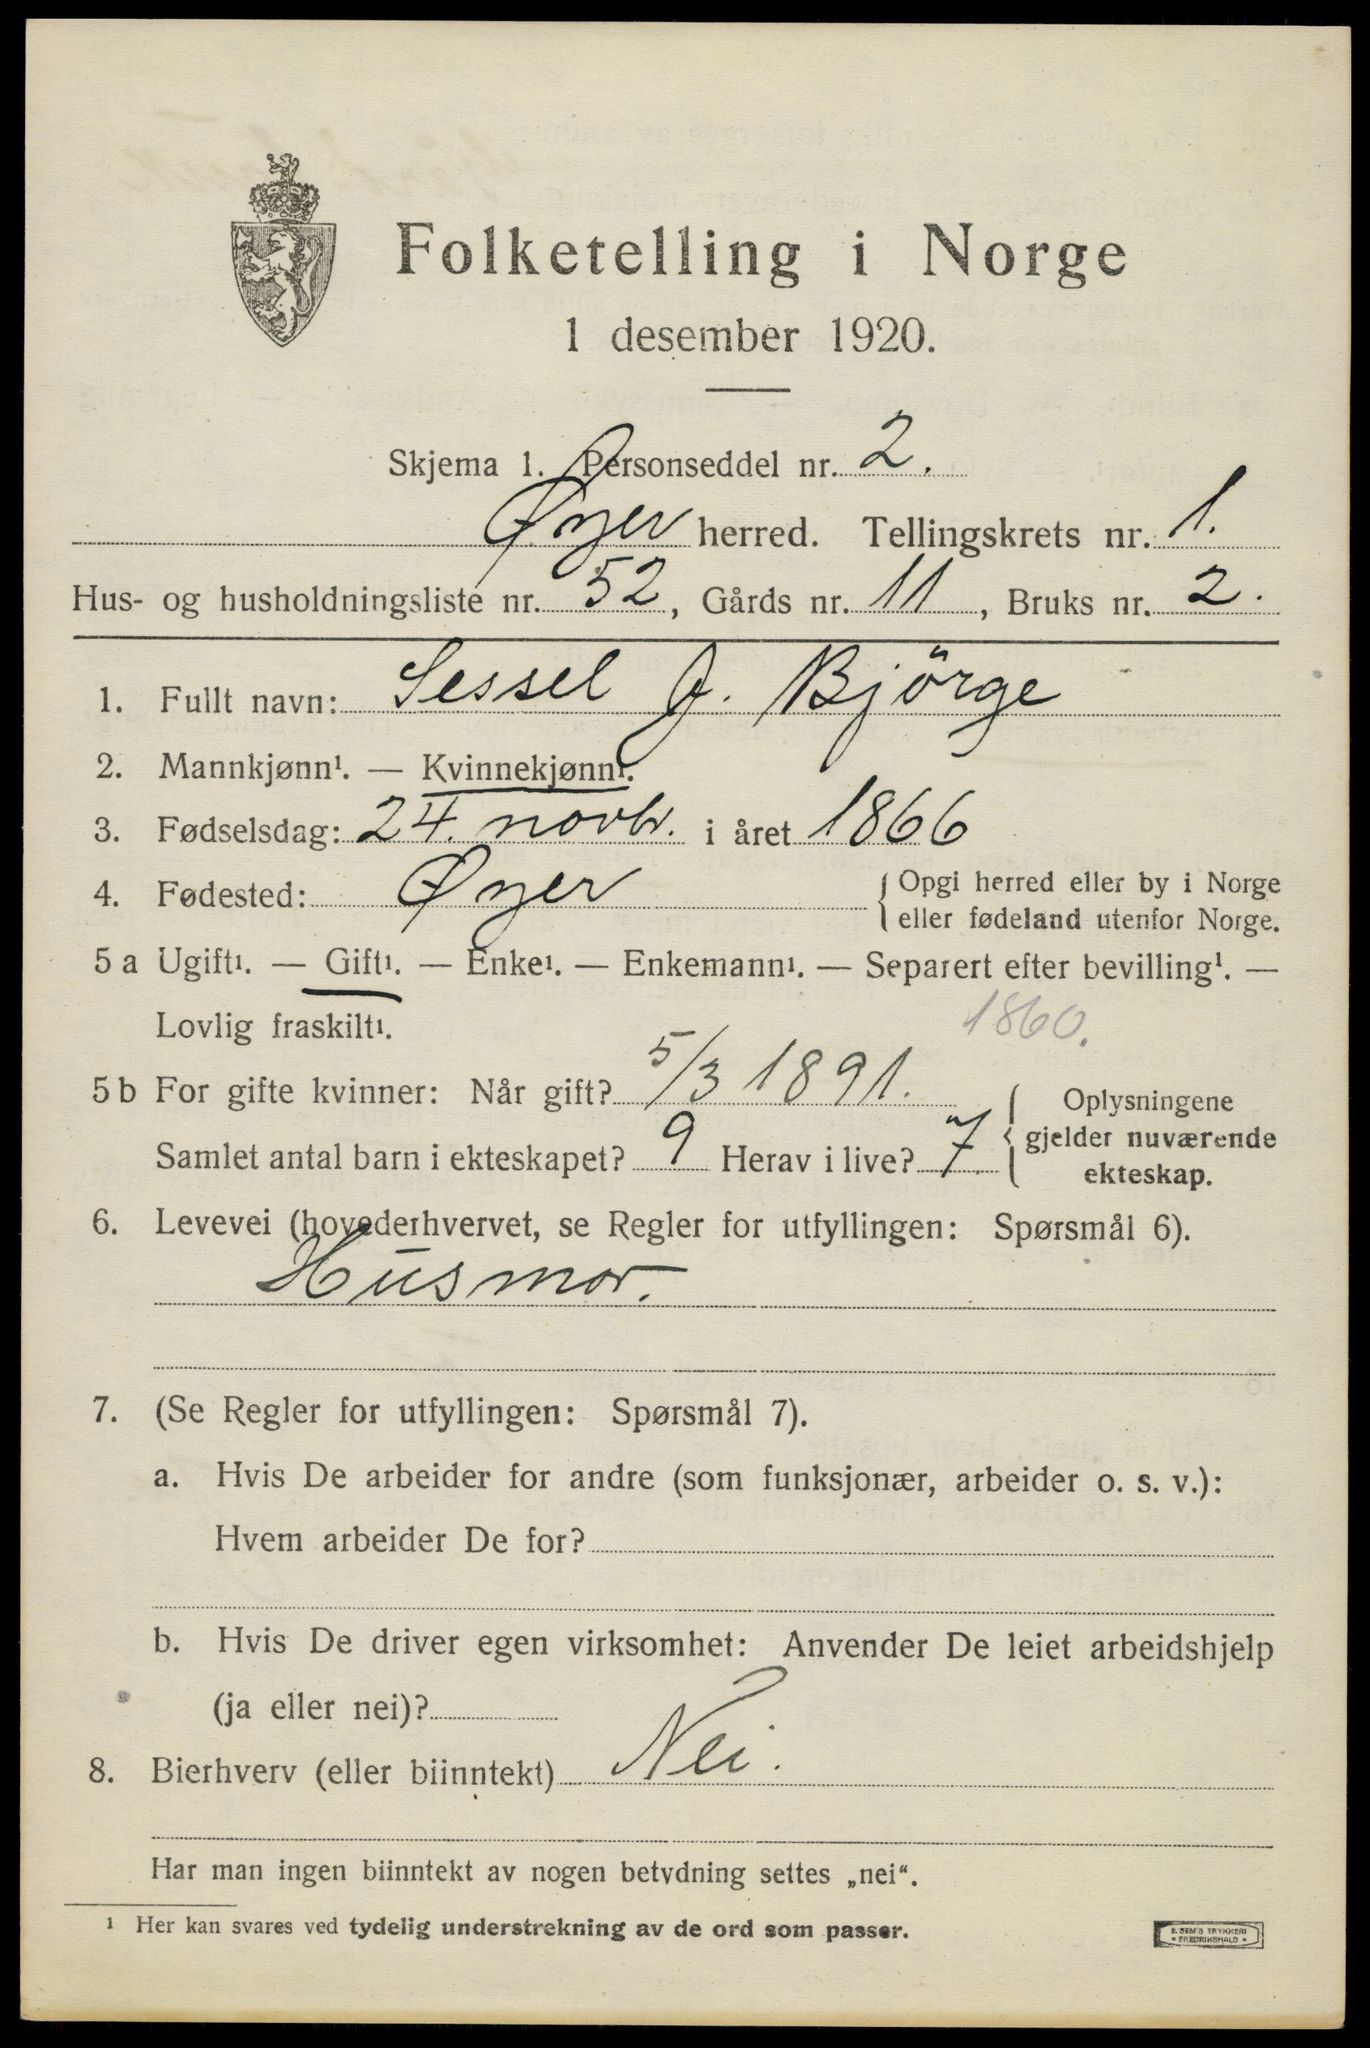 Folketelling i Norge
1 desember 1920.
Skjema 1. Personseddel nr. 2.
Øyer herred. Tellingskrets nr. 1.
Hus- og husholdningsliste nr. 52, Gårds nr. 11, Bruks nr. 2.
1. Fullt navn: Sessel J. Björge
2. Mannkjønn¹. — Kvinnekjønn¹.
3. Fødselsdag: 24. novbr. i året 1866
4. Fødested: Øyer { Opgi herred eller by i Norge
eller fødeland utenfor Norge.
5 a Ugift¹. — Gift¹. — Enke¹. — Enkemann¹. — Separert efter bevilling¹. —
Lovlig fraskilt¹. 1860.
5 b For gifte kvinner: Når gift? 5/3 1891.
Samlet antal barn i ekteskapet? 9 Herav i live? 7 { Oplysningene
gjelder nuværende
ekteskap.
6. Levevei (hovederhvervet, se Regler for utfyllingen: Spørsmål 6).
Husmor.
7. (Se Regler for utfyllingen: Spørsmål 7).
a. Hvis De arbeider for andre (som funksjonær, arbeider o. s. v.):
Hvem arbeider De for?
b. Hvis De driver egen virksomhet: Anvender De leiet arbeidshjelp
(ja eller nei)?
8. Bierhverv (eller biinntekt) Nei.
Har man ingen biinntekt av nogen betydning settes „nei“.
¹ Her kan svares ved tydelig understrekning av de ord som passer.
E. SEM'S TRYKKERI
• FREDRIKSHALD •